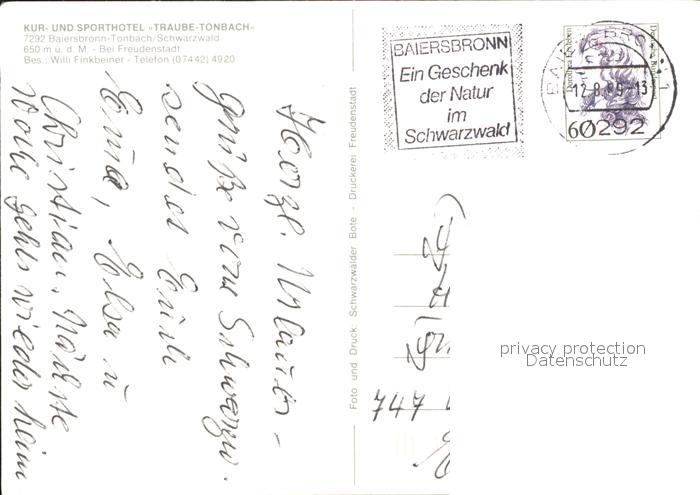 KUR- UND SPORTHOTEL »TRAUBE-TONBACH«
7292 Baiersbronn-Tonbach/Schwarzwald
650 m ü. d. M. - Bei Freudenstadt
Bes.: Willi Finkbeiner - Telefon (07442) 4920
Herzl. Urlaubs-
grüße vom Schwarzw.
sendet Euch
Erna, Elsa u
Christian. Nächste
Woche gehts wieder heim
Foto und Druck: Schwarzwälder Bote - Druckerei Freudenstadt
BAIERSBRONN
Ein Geschenk
der Natur
im
Schwarzwald
12.8.
-13
1
60292
747
privacy protection
Datenschutz